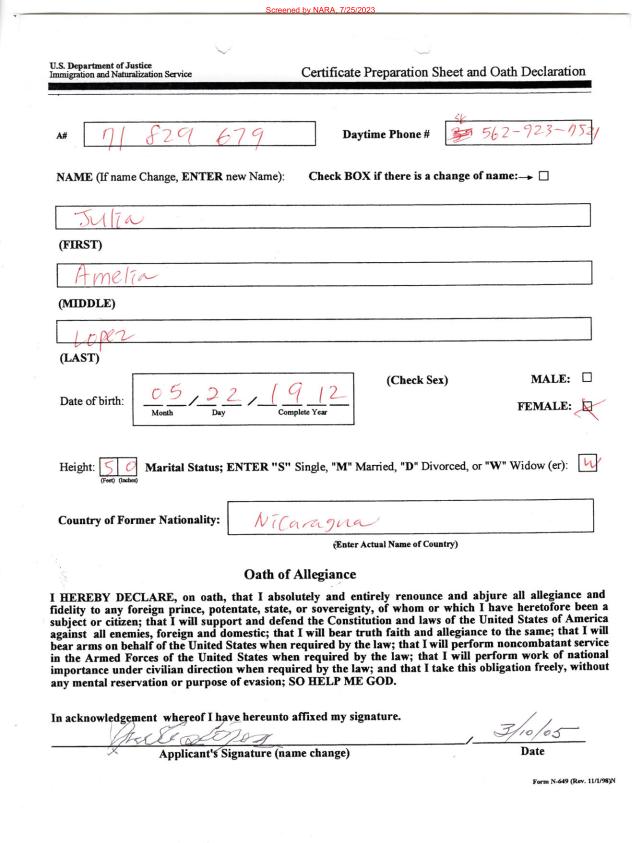 Screened by NARA, 7/25/2023
U.S. Department of Justice
Immigration and Naturalization Service
Certificate Preparation Sheet and Oath Declaration
A# 71 829 679 Daytime Phone # 562-923-7521
NAME (If name Change, ENTER new Name): Check BOX if there is a change of name:→ ☐
Julia
(FIRST)
Amelia
(MIDDLE)
Lopez
(LAST)
(Check Sex) MALE: ☐
Date of birth: 05, 22, 1912
Month Day Complete Year
FEMALE: ☒
Height: 5 0 Marital Status; ENTER "S" Single, "M" Married, "D" Divorced, or "W" Widow (er): W
(Feet) (Inches)
Country of Former Nationality: Nicaragua
(Enter Actual Name of Country)
Oath of Allegiance
I HEREBY DECLARE, on oath, that I absolutely and entirely renounce and abjure all allegiance and
fidelity to any foreign prince, potentate, state, or sovereignty, of whom or which I have heretofore been a
subject or citizen; that I will support and defend the Constitution and laws of the United States of America
against all enemies, foreign and domestic; that I will bear truth faith and allegiance to the same; that I will
bear arms on behalf of the United States when required by the law; that I will perform noncombatant service
in the Armed Forces of the United States when required by the law; that I will perform work of national
importance under civilian direction when required by the law; and that I take this obligation freely, without
any mental reservation or purpose of evasion; SO HELP ME GOD.
In acknowledgement whereof I have hereunto affixed my signature.
Julia Lopez , 3/10/05
Applicant's Signature (name change) Date
Form N-649 (Rev. 11/1/98)N